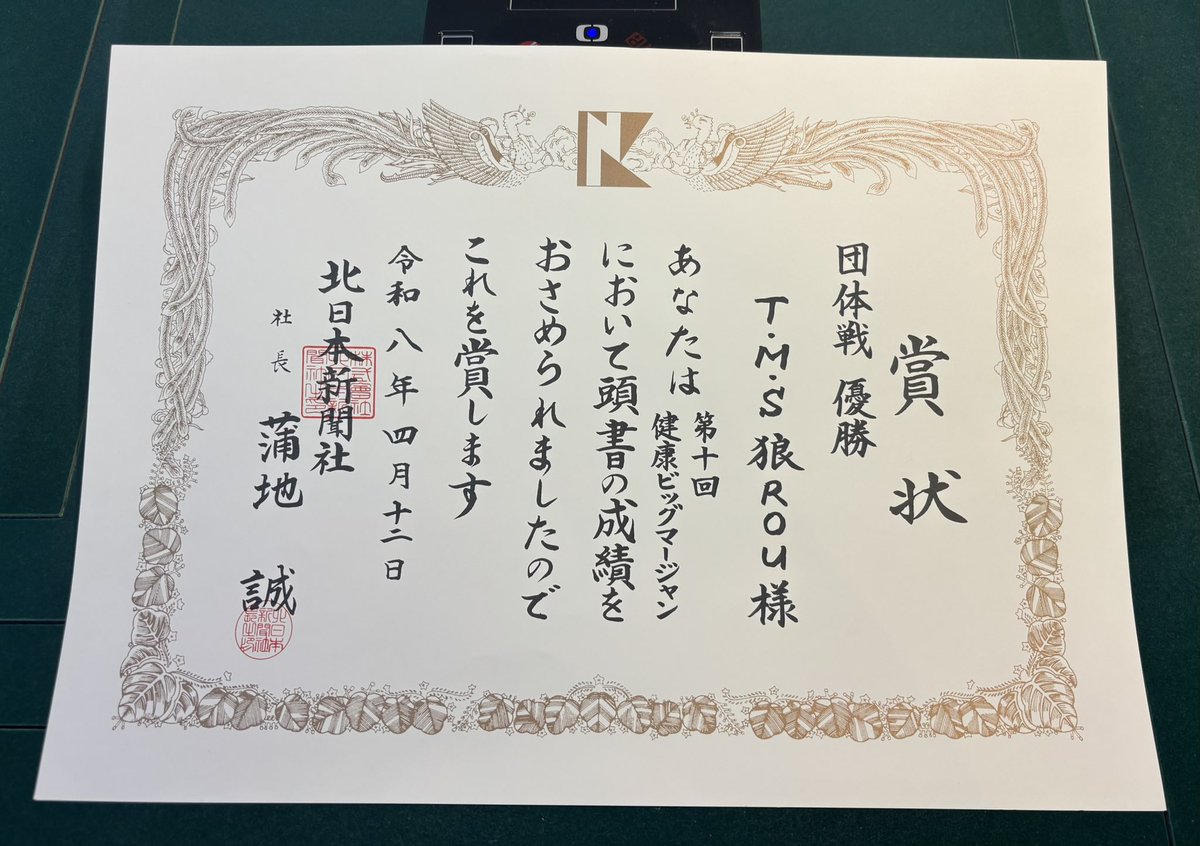 賞状
団体戦 優勝
T.M.S 狼 ROU 様
あなたは 第十回 健康ビッグマージャン
において頭書の成績を
おさめられましたので
これを賞します
令和八年四月十二日
北日本新聞社
社長 蒲地 誠